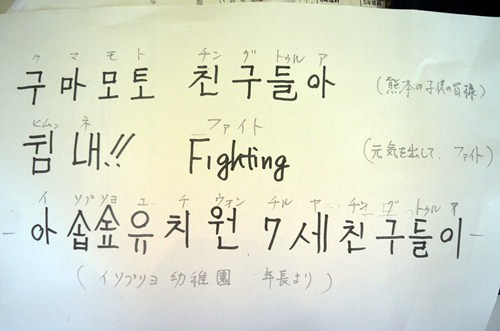 ク マ モ ト チン グ トゥル ア
구마모토 친구들아 (熊本の子供の皆様)
ヒムン ネ ファイト
힘내!! Fighting (元気を出して、ファイト)
ユ チ ウォン チル ヤ チン グ トゥル ア
유치원 7세친구들이 -
幼稚園 年長より)